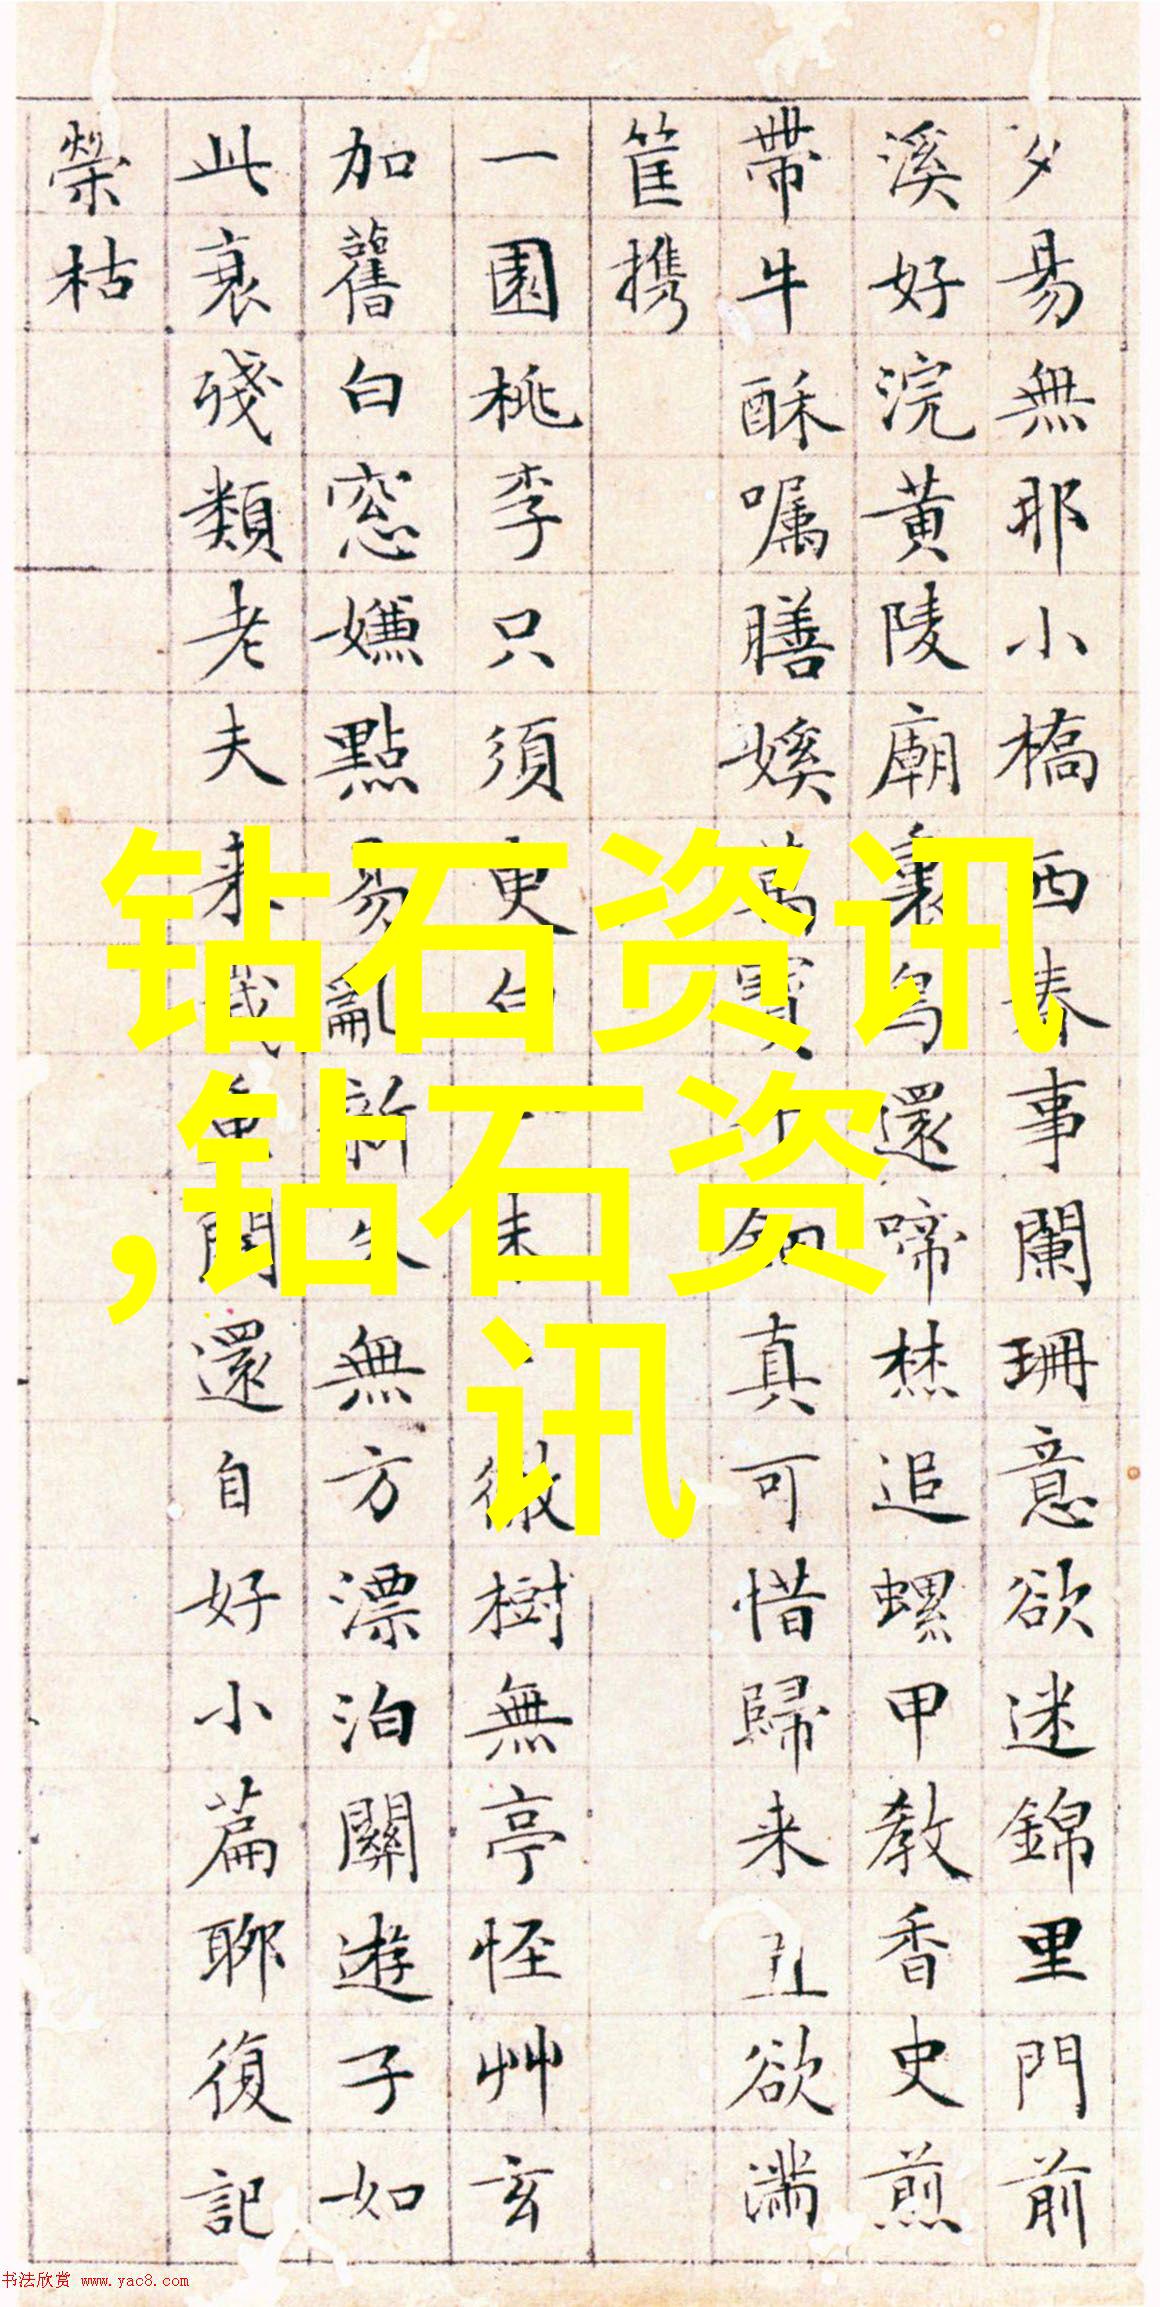 夕易無耶小橋西春事闌珊意欲迷錦里門前
溪好浣黄陵廟裏烏還啼愁追螺甲教香史煎
帶牛酥嘱膳媛萬寶真可惜歸来丑欲満
筐携
一園桃李只須更白徴樹無亭怪艸玄
加舊白窓嫌點易亂新久無方漂泊關遊子如
此衰殘類老夫来歲還自好小篇聊復記
榮枯
钻石资讯
,钻石资
讯
书法欣赏 www.yac8.com